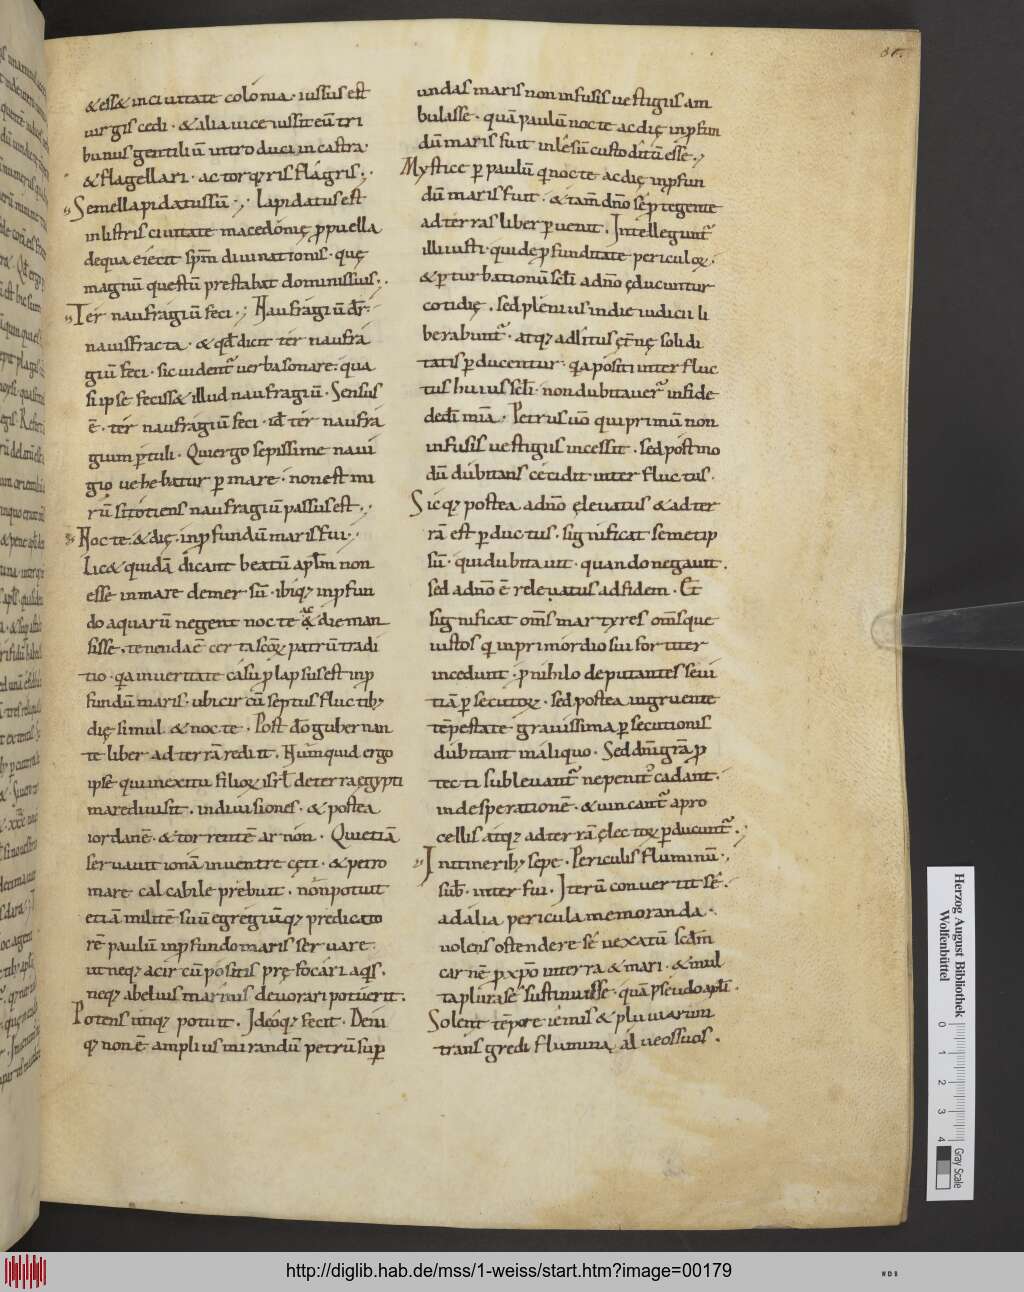 & ess& in ciuitate colónia · iussus est
uirgis cedi · & alia uice iussit eū tri
bunus gentiliū intro duci in castra ·
& flagellari · ac torq̨ris flágris ;·
Semel lapidatus sū ·,· lapidatus est
in listris ciuitate macedónię p̱ puella
de qua eiécit sp̄m diuinationis · quę
magnū questū prestabat dominis suis ;·
Ter naufrágiū feci ·; Naufrágiū dr̄ ·
nauis fracta · & qđ dicit tér naufrá
giū feci · sic uident̄ uerba sonare · qua
si ipse feciss& illud naufragiū · Sensus
ē · tér naufrágiū feci · id ē tér naufrá
gium ꝑtuli · Qui ergo sepissime naui
gio uehebatur ꝑ mare · non est mi
rū si tótiens naufragiū passus est ·,·
Nocte · & dię · in p̱fundū maris fui ·,·
Lic& quidā dicant beatū apl̄m non
esse in mare demersū · ibiq; in p̱fun
do aquarū negent nocte ac die man
sisse · tenenda ē certa scōꝝ patrū tradi
tio · qa in ueritate cásu p̱lapsus est in p̱
fundū maris · ubi circūseptus fluctib;
dię simul · & nocte · Post dō gubernan
te liber ad terrā rediit · Numquid ergo
ipse qui in exitu filioꝝ isrl̄ de terra ęgypti
mare diuisit · in diuisiones · & postea
iordanē · & torrentē arnón · Qui etiā
seruauit ionā in uentre cęti · & petro
mare calcabile prébuit · nón potuit
etiā militē suū egregiūq; predicato
rē paulū in p̱fundo maris séruare ·
ut neq; a circūpositis pręfocári aqis ·
neq; a beluis marinis deuorari potúerit ·
Potens utiq; potuit · Ideóq; fecit · Deni
q; non ē amplius mirandū petrū suꝑ
undas maris non infusis uestigiis am
bulasse · quā paulū nocte ac dię in p̱fun
dū maris fuit inlésū custoditū esse ·,
Mystice ꝑ paulū q nocte ac dię in p̱fun
dū maris fuit · & tam̄ dn̄o sé p̱tegente
ad térras liber ꝑuenit · Intellegunt̄
illi iusti · qui de p̱funditate periculoꝝ ·
& ꝑturbationū scl̄i a dn̄o ęducuntur
cotidię · sed plénius in die iudicii li
berabunt̄ · atq; ad litus ęt̄nę solidi
tatis ꝑducentur · qa pósiti inter fluc
tus huius scl̄i · non dubitauer̄ in fide
de dn̄i miā · Petrus uō qui primū non
infusis uestigiis incessit · sed póst mo
dū dúbitans cécidit inter fluctus ·
Sicq; postea a dn̄o ęleuatus & ad ter
rā est ꝑductus · significat semetip
sū · qui dubitauit · quando negauit ·
sed a dn̄o ē releuatus ad fidem · Et
significat om̄s martyres om̄sque
iustos q in primórdio sui fortiter
incedunt · p̱ nihilo deputantes séui
tiā ꝑsecutoꝝ · sed postea ingruente
tēpestate grauissima ꝑsecutionis
dúbitant in áliquo · Sed dn̄i grā p̱
tecti subleuant̄ ne penit̾ cadant ·
in desperationē · & uincant̄ a pro
cellis atq; ad terrā ęlectoꝝ ꝑducunt̄ ·,
In itinerib; sepe · Periculis fluminū ·,
sub · inter fui · Iterū conuertit sé ·
ad ália pericula memoranda ·
uolens ostendere sé uexatū scd̄m
carnē p̱ xp̄o in terra & mari · & mul
ta plura sé sustinuisse · quā pseudo apl̄i ·
Solent tēpore iémis & pluuiarum
tráns gredi flumina ál ueos suos ·
Herzog August Bibliothek
Wolfenbüttel
0 1 2 3 4
Gray Scale
http://diglib.hab.de/mss/1-weiss/start.htm?image=00179